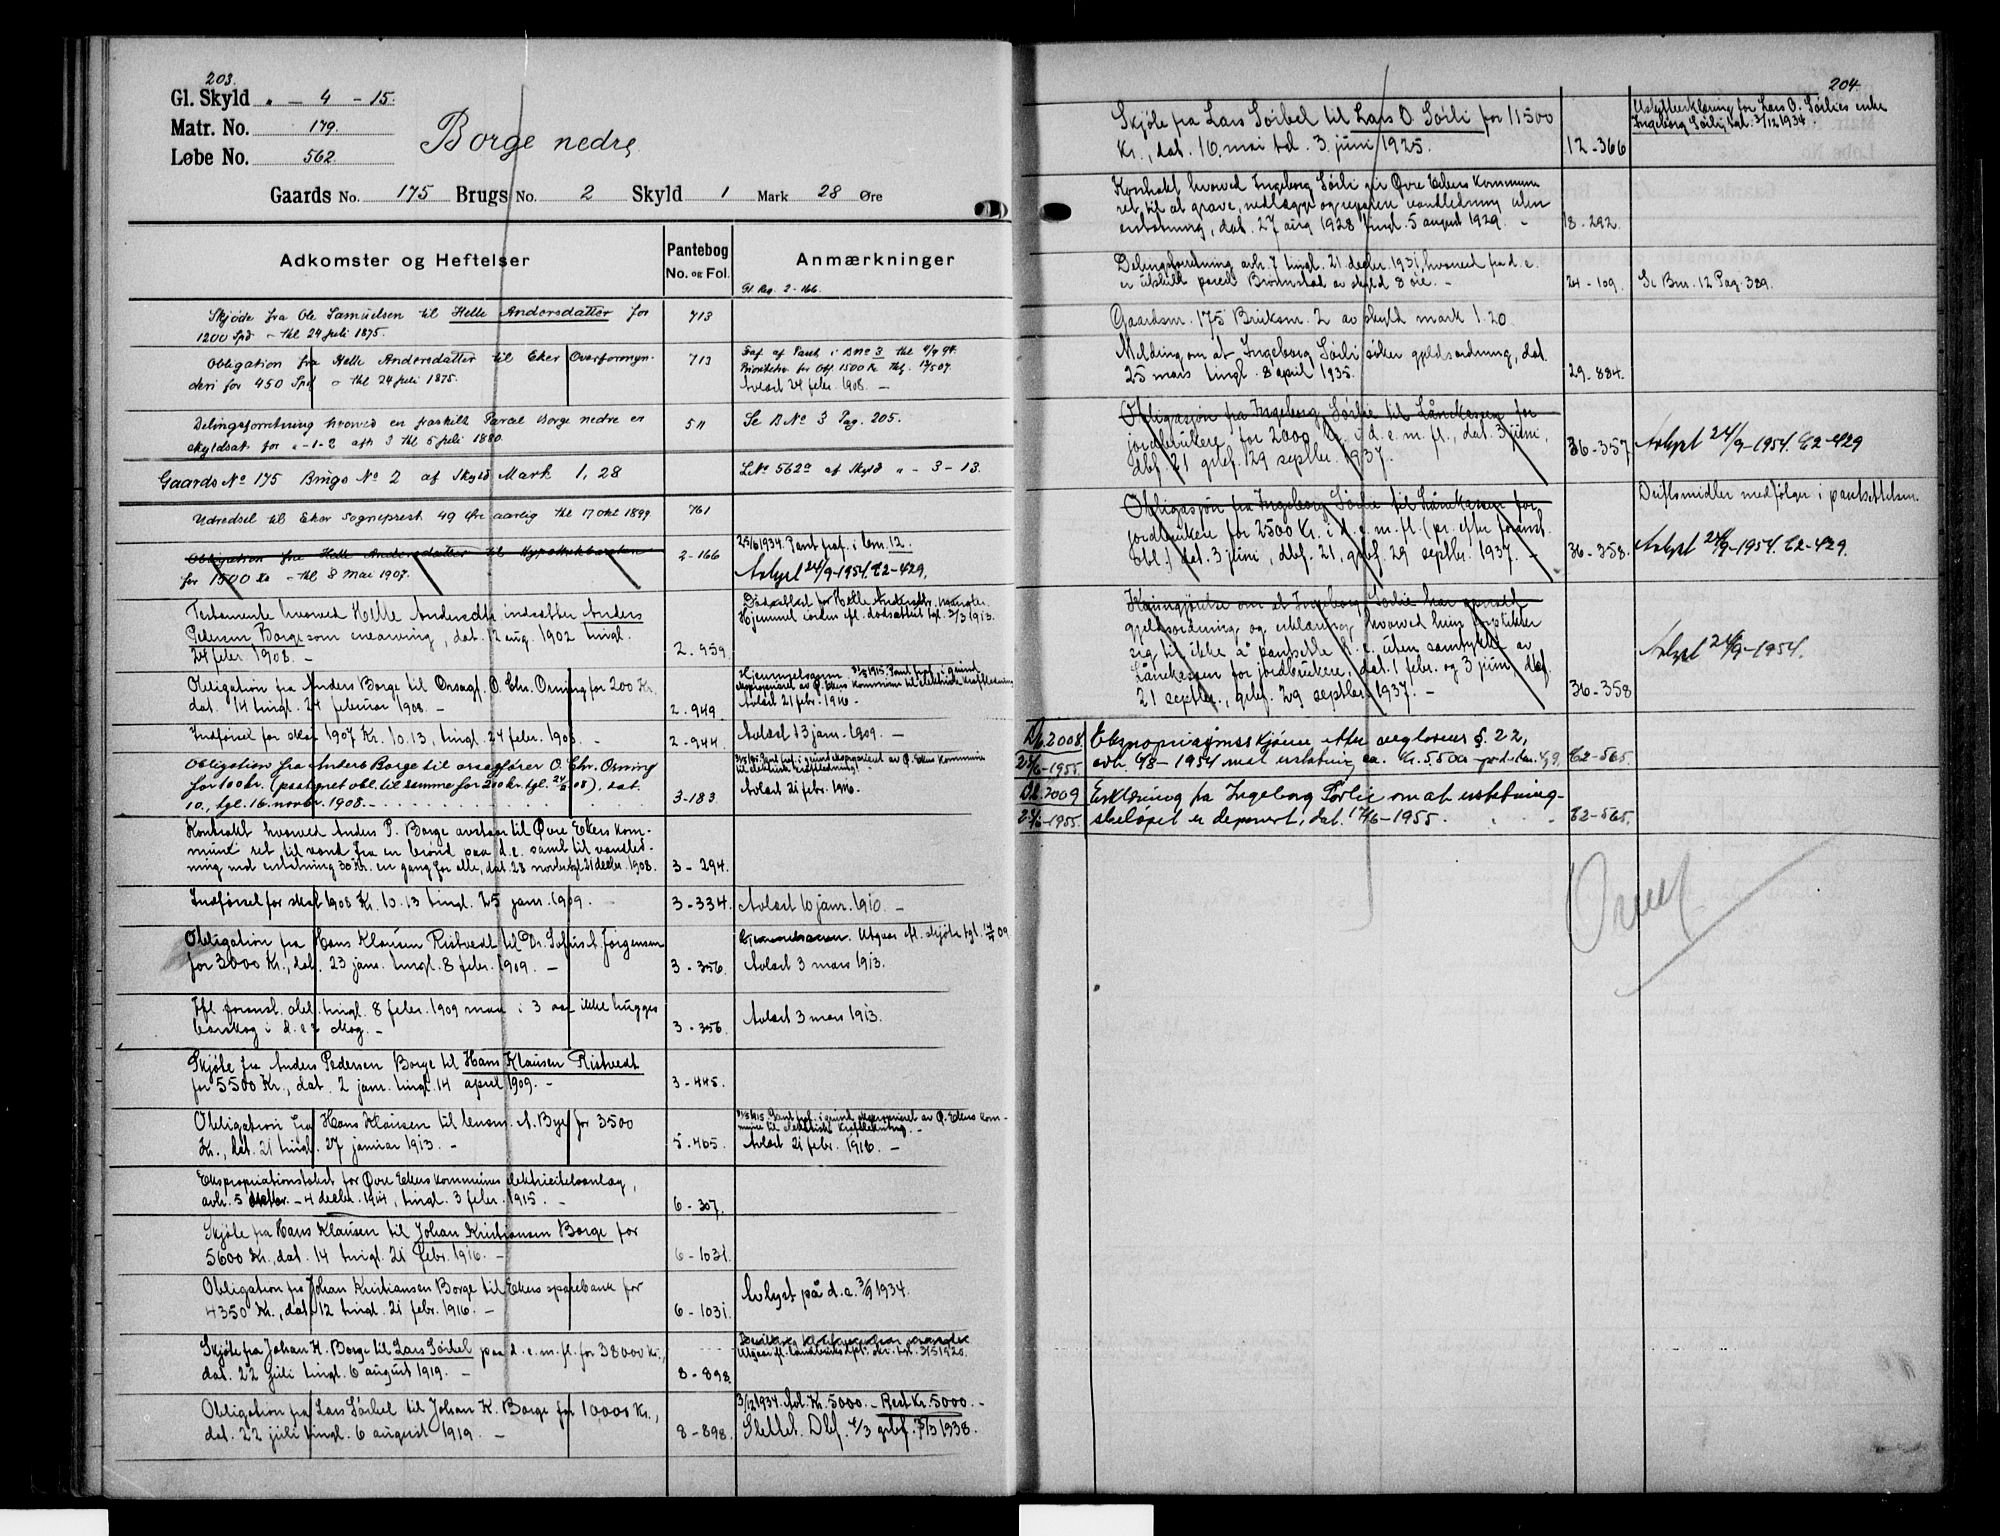 203.
Gl. Skyld " - 4 - 15.
Matr. No. 179.
Løbe No. 562.
Borge nedre
Gaards No. 175 Brugs No. 2 Skyld 1 Mark 28 Øre
Adkomster og Heftelser
Pantebog
No. og Fol.
Anmærkninger
Gl. Reg. 2-166.
Skjøde fra Ole Samuelsen til Helle Andersdatter for
1200 Spd - thl 24 juli 1875.
713
Obligation fra Helle Andersdatter til Eker Overformyn-
deri for 450 Spd - thl 24 juli 1875.
713
Fraf. af Pant. i BNo 3 thl
Prioritetsv. for Obl. 1500 Kr
Avlæst 24 febr. 1908. -
Delingsforretning hvorved en fraskilt Parcel Borge nedre er
skyldsat for "-1-2 afh 3 thl 5 juli 1880.
511
Se BNo 3 Pag. 205.
Gaards No 175 Brugs No 2 af Skyld Mark 1,28
LNo 562a af Skyld " - 3 - 13.
Udredsel til Eker Sogneprest 49 Øre aarlig thl 17 okt 1899
761
Obligation fra Helle Andersdatter til Hypothekbanken
for 1500 Kr - thl 8 Mai 1907.
2-166
25/6 1934. Pant fraf. i brn. 12.
Avlyst 24/9-1954. E2-429.
Testamente hvorved Helle Andersdtr indsætter Anders
Pedersen Borge som enearving, dat. 12 aug. 1902 tingl.
24 febr 1908. -
2-959
Dødsattest for Helle Andersdtr. mangler
Hjemmel iorden efl. dødsattest tgl. 3/3 1913.
Obligation fra Anders Borge til Orsagf. O. Chr. Orning for 200 Kr.
dat. 14 tingl. 24 februar 1908. -
2-949
Hjemmelsanm. 31/5 1915. Pant fraf. i grund
ekspropriert av Ø. Ekers kommune til elektrisk kraftledning
Avlæst 21 febr. 1916 -
Indførsel for skat 1907 Kr. 10.13, tingl. 24 febr. 1908. -
2-944
Avlæst 13 janr. 1909. -
Obligation fra Anders Borge til orsagfører O. Chr. Orning
for 100 kr. (paategnet obl. til samme for 200 kr. tgl. 24/2 08), dat.
10., tgl. 16. novbr. 1908. -
3-183
31/5 1915 Pant fraf. i grund ekspropriert av Ø. Ekers kommune
til elektrisk kraftledning.
Avlæst 21 febr. 1916. -
Kontrakt hvorved Anders P. Borge avstaar til Øvre Ekers kom-
mune ret til vand fra en brønd paa d.e. samt til vandled-
ning mot erstatning 30 Kr. en gang for alle, dat. 28 novbr tgl 21 decbr. 1908.
3-294.
Indførsel for skat 1908 Kr. 10.13 tingl. 25 janr. 1909. -
3-334
Avlæst 10 janr. 1910. -
Obligation fra Hans Klausen Ristvedt til Dr. Sofus A. Jørgensen
for 3000 Kr., dat. 23 janr. tingl. 8 febr. 1909. -
3-356
Utgaar efl. skjøte tgl. 14/4 09.
Avlæst 3 mars 1913.
Ifl. foranst. obl. tingl. 8 febr. 1909 maa i 3 aar ikke hugges
barskog i d.e.s skog. -
3-356
Avlæst 3 mars 1913.
Skjøte fra Anders Pedersen Borge til Hans Klausen Ristvedt
for 5500 Kr., dat. 2 janr. tingl. 14 april 1909. -
3-445.
Obligation fra Hans Klausen til lensm. A. Bye for 3500
Kr., dat. 21 tingl. 27 januar 1913. -
5-465
31/5 1915 Pant fraf. i grund ekspropriert av Ø. Ekers kom-
mune til elektrisk kraftledning. -
Avlæst 21 febr. 1916. -
Ekspropriationstakst for Øvre Ekers kommunes elektricitetsanlæg,
avh. 5 oktbr. - 4 decbr. 1914, tingl. 3 febr. 1915. -
6-307.
Skjøte fra Hans Klausen til Johan Kristiansen Borge for
5600 Kr., dat. 14 tingl. 21 febr. 1916. -
6-1031.
Obligation fra Johan Kristiansen Borge til Ekers sparebank for
4350 Kr., dat. 12 tingl. 21 febr. 1916. -
6-1031
Avlyst på d.e. 3/9 1934.
Skjøte fra Johan K. Borge til Lars Sørbel paa d.e. m.fl. for 38000 kr.,
dat. 22 juli tingl. 6 august 1919. -
8-898.
Utgaar fl. landbruksdpt. skr. tgl. 31/5 1920.
Obligation fra Lars Sørbel til Johan K. Borge for 10000 Kr.,
dat. 22 juli tingl. 6 august 1919. -
8-898
3/12 1934. Avl. Kr. 5000. - Rest Kr. 5000. -
Slettet. Dbf. 4/3 grbf. 7/3 1938.
204.
Skjøte fra Lars Sørbel til Lars O. Sørli for 11500
Kr., dat. 16. mai tgl. 3. juni 1925.
12-366
Uskifteerklæring for Lars O. Sørlies enke
Ingeborg Sørli, tgl. 3/12 1934.
Kontrakt hvorved Ingeborg Sørli gir Øvre Ekers kommune
ret til at grave, nedlægge og reparere vandledning uten
erstatning, dat. 27 aug 1928 tingl. 5 august 1929. -
18-292.
Delingsforretning avh. 7 tingl. 21 decbr. 1931, hvorved fra d.e.
er utskilt parcel Brønnstad av skyld 8 øre. -
24-109.
Se Bnr. 12 Pag. 329.
Gaardsnr. 175 Bruksnr. 2 av skyld mark 1.20.
Melding om at Ingeborg Sørli søker gjeldsordning, dat.
25 mars tingl. 8 april 1935.
29-884.
Obligasjon fra Ingeborg Sørlie til Lånekassen for
jordbrukere for 2000 Kr. i d.e. m. fl., dat. 3 juni,
dbf. 21 grbf. 29 septbr. 1937. -
36-357
Avlyst 24/9-1954. E2-429
Obligasjon fra Ingeborg Sørlie til Lånekassen for
jordbrukere for 2500 Kr. i d.e. m. fl. (pr. efter foranst.
obl.) dat. 3 juni, dbf. 21, grbf. 29 septbr. 1937. -
36-358.
Driftsmidler medfølger i pantsettelsen.
Avlyst 24/9-1954. E2-429.
Kunngjørelse om at Ingeborg Sørlie har opnådd
gjeldsordning og erklæring hvorved hun forplikter
sig til ikke å pantsette d.e. uten samtykke av
Lånekassen for jordbrukere, dat. 1 febr. og 3 juni, dbf.
21 septbr., grbf. 29 septbr. 1937. -
36-358
Avlyst 24/9-1954.
Db. 2008
-1955.
Ekspropriasjonsskjønn etter vegloven § 22,
avh. 4/8-1954 mot erstatning ca. Kr. 5.500
E2-565.
Db. 2009
-1955.
Erklæring fra Ingeborg Sørlie om at erstatning-
sbeløpet er deponert, dat. 17/6-1955.
E2-565.